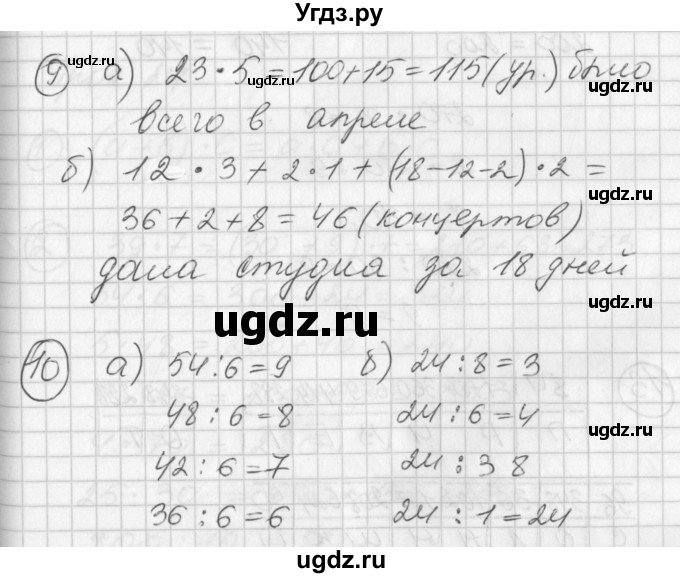 Угдз.ру
9 а) 23 · 5 = 100 + 15 = 115 (ур.) было
всего в апреле
б) 12 · 3 + 2 · 1 + (18 - 12 - 2) · 2 =
36 + 2 + 8 = 46 (концертов)
дала студия за 18 дней
10 а) 54 : 6 = 9
48 : 6 = 8
42 : 6 = 7
36 : 6 = 6
б) 24 : 8 = 3
24 : 6 = 4
24 : 3 8
24 : 1 = 24
ugdz.ru
ugdz.ru
ugdz.ru
ugdz.ru
ugdz.ru
ugdz.ru
ugdz.ru
ugdz.ru
ugdz.ru
ugdz.ru
ugdz.ru